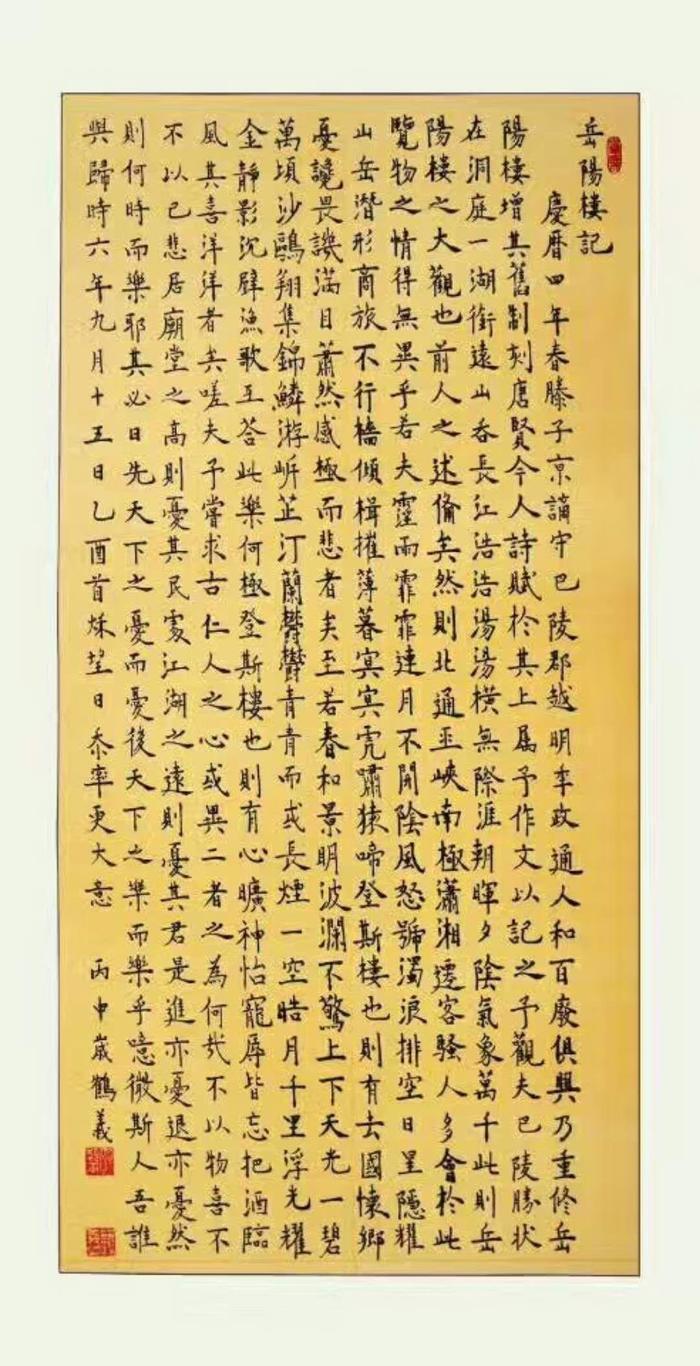 岳陽樓記
慶曆四年春滕子京謫守巴陵郡越明年政通人和百廢俱興乃重修岳
陽樓增其舊制刻唐賢今人詩賦於其上屬予作文以記之予觀夫巴陵勝狀
在洞庭一湖銜遠山吞長江浩浩湯湯橫無際涯朝暉夕陰氣象萬千此則岳
陽樓之大觀也前人之述備矣然則北通巫峽南極瀟湘遷客騷人多會於此
覽物之情得無異乎若夫霪雨霏霏連月不開陰風怒號濁浪排空日星隱耀
山岳潛形商旅不行檣傾楫摧薄暮冥冥虎嘯猿啼登斯樓也則有去國懷鄉
憂讒畏譏滿目蕭然感極而悲者矣至若春和景明波瀾不驚上下天光一碧
萬頃沙鷗翔集錦鱗游岸芷汀蘭鬱鬱青青而或長煙一空皓月千里浮光耀
金靜影沉璧漁歌互答此樂何極登斯樓也則有心曠神怡寵辱皆忘把酒臨
風其喜洋洋者矣嗟夫予嘗求古仁人之心或異二者之為何哉不以物喜不
不以己悲居廟堂之高則憂其民處江湖之遠則憂其君是進亦憂退亦憂然
則何時而樂耶其必曰先天下之憂而憂後天下之樂而樂乎噫微斯人吾誰
與歸時六年九月十五日乙酉首秌望日忝率更大意 丙申歲鶴義